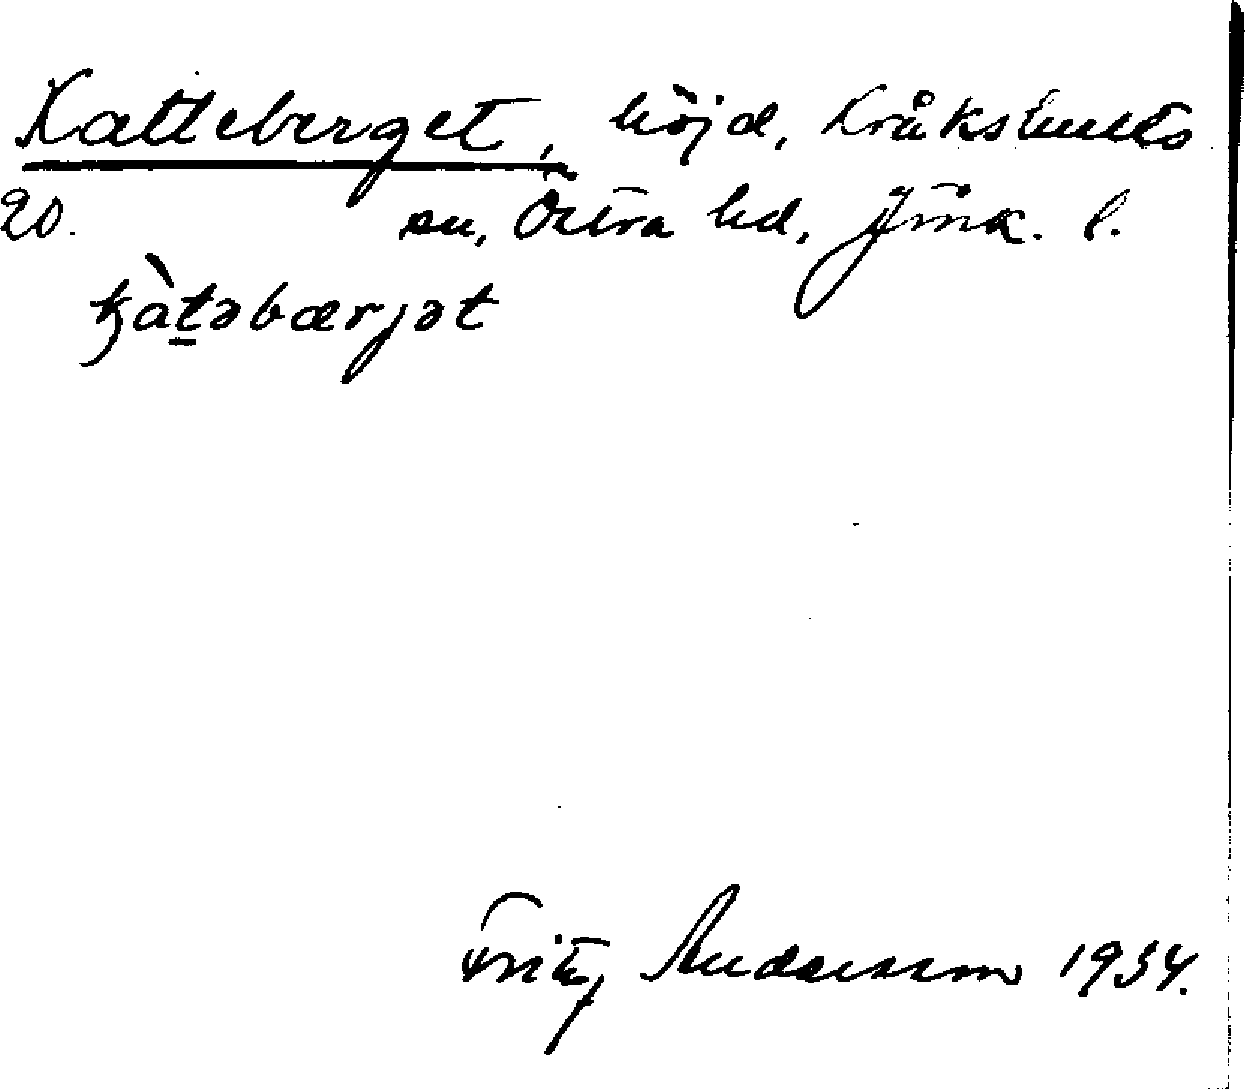 Katteberget, höjd, Kråkshults
20. sn, Östra hd, Jönk. l.
kàtəbærjət
Fritz Andersson 1934.